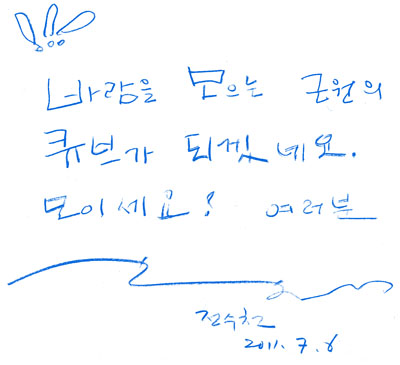 바람을 모으는 근원의
큐브가 되겠네요.
모이세요! 여러분
전수천
2011. 7. 6